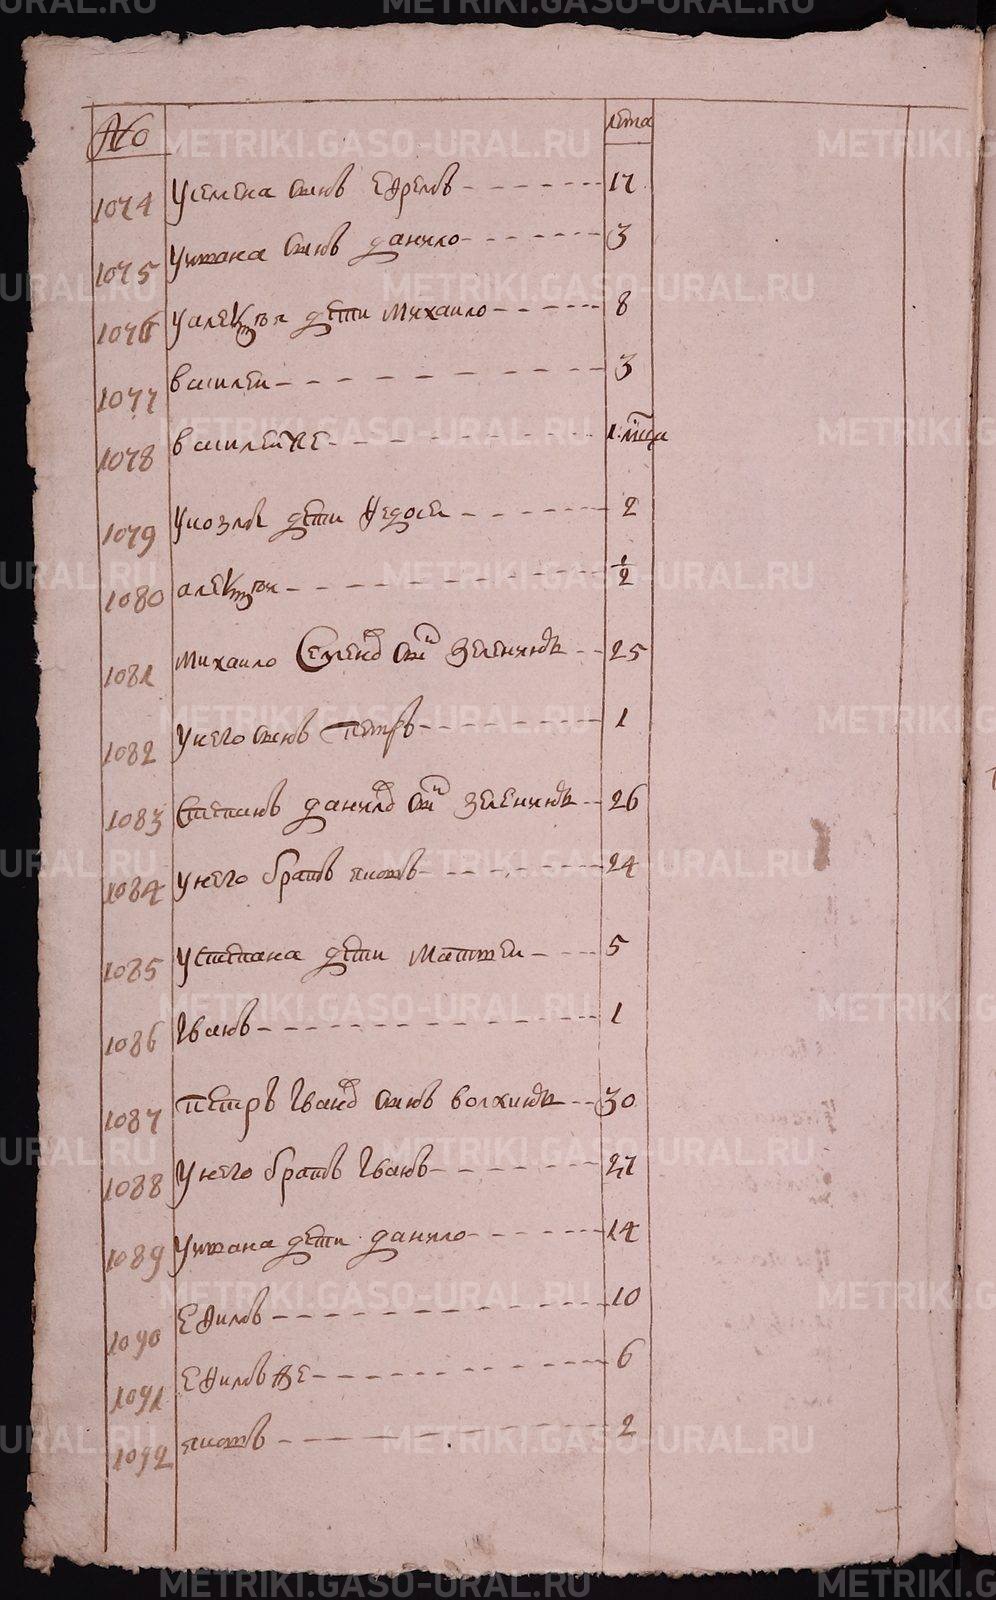 METRIKI.GASO-URAL.RU
№ лета
1074 У семена снъ Ефремъ 17
1075 У ивана снъ данило 3
1076 У алеѯѣя дети михаило 8
1077 василеи 3
1078 василеи же 1 мсца
1079 дети Федосеи 2
1080 алеѯѣи 1/2
1081 михаило Семенов снъ Зеленинъ 25
1082 У него снъ Петръ 1
1083 Степанъ данилов снъ Зеленинъ 26
1084 У него братъ 24
1085 У Степана дети Матвеи 5
1086 Иванъ 1
1087 Петръ Иванов снъ волхинъ 30
1088 У него братъ Иванъ 27
1089 У ивана дети данило 14
1090 10
1091 же 6
1092 2